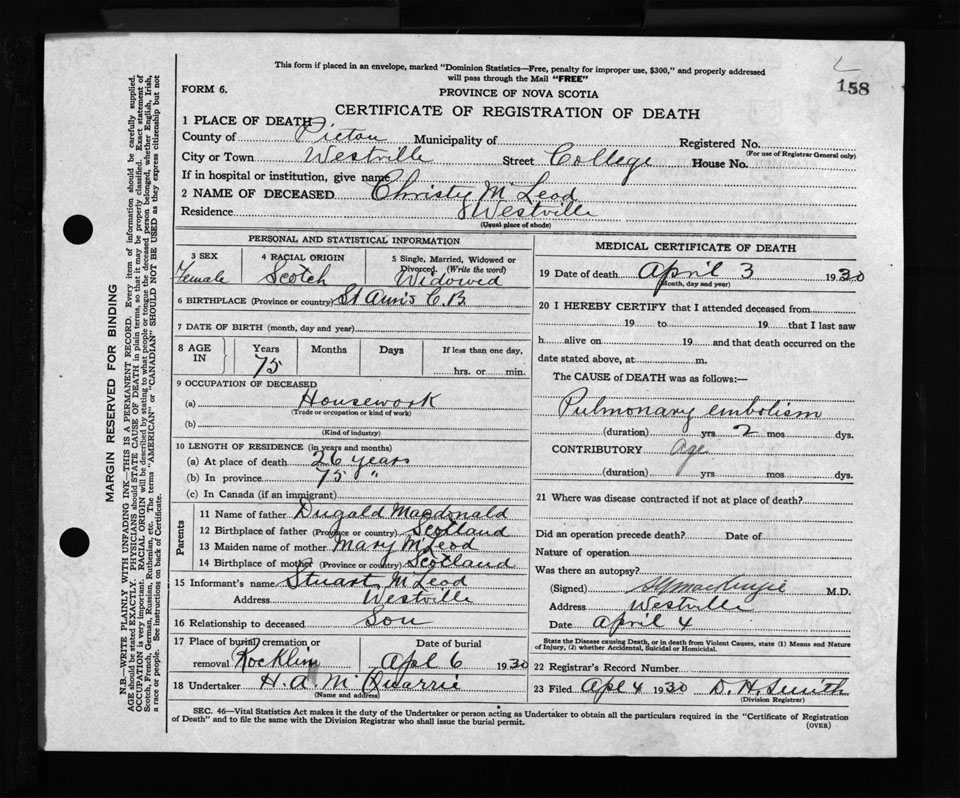 This form if placed in an envelope, marked "Dominion Statistics—Free, penalty for improper use, $300," and properly addressed
will pass through the Mail "FREE"
158
FORM 6.
PROVINCE OF NOVA SCOTIA
CERTIFICATE OF REGISTRATION OF DEATH
1 PLACE OF DEATH
County of Pictou Municipality of Registered No.
(For use of Registrar General only)
City or Town Westville Street College House No.
If in hospital or institution, give name
2 NAME OF DECEASED Christy McLeod
Residence Westville
(Usual place of abode)
MARGIN RESERVED FOR BINDING
N.B.—WRITE PLAINLY WITH UNFADING INK—THIS IS A PERMANENT RECORD. Every item of information should be carefully supplied.
AGE should be stated EXACTLY. PHYSICIANS should STATE CAUSE OF DEATH in plain terms, so that it may be properly classified. Exact statement of
OCCUPATION is very important. RACIAL ORIGIN will be described by stating to what people or tongue the deceased person belonged, whether English, Irish,
Scotch, French, German, Russian, Ruthenian, etc. The terms "AMERICAN" or "CANADIAN" SHOULD NOT BE USED as they express citizenship but not
a race or people. See instructions on back of Certificate.
PERSONAL AND STATISTICAL INFORMATION
3 SEX
Female
4 RACIAL ORIGIN
Scotch
5 Single, Married, Widowed or
Divorced. (Write the word)
Widowed
6 BIRTHPLACE (Province or country) St Anns C.B.
7 DATE OF BIRTH (month, day and year)
8 AGE IN
Years Months Days If less than one day,
75 hrs. or min.
9 OCCUPATION OF DECEASED
(a) Housework
(Trade or occupation or kind of work)
(b)
(Kind of industry)
10 LENGTH OF RESIDENCE (in years and months)
(a) At place of death 26 years
(b) In province 75 "
(c) In Canada (if an immigrant)
Parents
11 Name of father Dugald Macdonald
12 Birthplace of father (Province or country) Scotland
13 Maiden name of mother Mary McLeod
14 Birthplace of mother (Province or country) Scotland
15 Informant's name Stuart McLeod
Address Westville
16 Relationship to deceased Son
17 Place of burial, cremation or
removal Rocklin
Date of burial
Apl 6 1930
18 Undertaker H. A. McQuarrie
(Name and address)
MEDICAL CERTIFICATE OF DEATH
19 Date of death April 3 1930
(Month, day and year)
20 I HEREBY CERTIFY that I attended deceased from
19 to 19 that I last saw
h alive on 19 and that death occurred on the
date stated above, at m.
The CAUSE of DEATH was as follows:—
Pulmonary embolism
(duration) yrs 2 mos dys.
CONTRIBUTORY Age
(duration) yrs mos dys.
21 Where was disease contracted if not at place of death?
Did an operation precede death? Date of
Nature of operation
Was there an autopsy?
(Signed) MacKenzie M.D.
Address Westville
Date April 4
State the Disease causing Death, or in death from Violent Causes, state (1) Means and Nature
of Injury, (2) whether Accidental, Suicidal or Homicidal.
22 Registrar's Record Number
23 Filed Apl 4 1930 D. H. Smith
(Division Registrar)
SEC. 46—Vital Statistics Act makes it the duty of the Undertaker or person acting as Undertaker to obtain all the particulars required in the "Certificate of Registration
of Death" and to file the same with the Division Registrar who shall issue the burial permit.
(OVER)